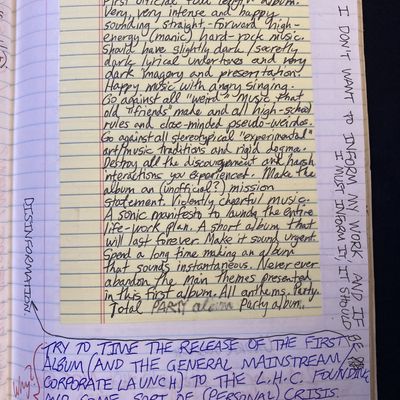 First official full length album.
Very, very intense and happy
sounding straight-forward high-
energy (manic) hard-rock music.
Should have slightly dark/secretly
dark lyrical undertones and very
dark imagory and presentation.
Happy music with angry singing.
Go against all "weird" music that
old "friends" make and all high-school
rules and close-minded pseudo-weirdos.
Go against all stereotypical "experimental"
art/music traditions and rigid dogma.
Destroy all the discouragement and harsh
interactions you experienced. Make the
album an (unofficial?) mission
statement. Violently cheerful music.
A sonic manifesto to launch the entire
life-work plan. A short album that
will last forever. Make it sound urgent.
Spend a long time making an album
that sounds instantaneous. Never ever
abandon the main themes presented
in this first album. All anthems. Party.
Total PARTY album Party album.
I DON'T WANT TO INFORM MY WORK AND IF
I MUST INFORM IT, IT SHOULD BE
DISINFORMATION
TRY TO TIME THE RELEASE OF THE FIRST
ALBUM (AND THE GENERAL MAINSTREAM/
CORPORATE LAUNCH) TO THE L.H.C. FOUNDING
AND SOME SORT OF (PERSONAL) CRISIS.
Why?